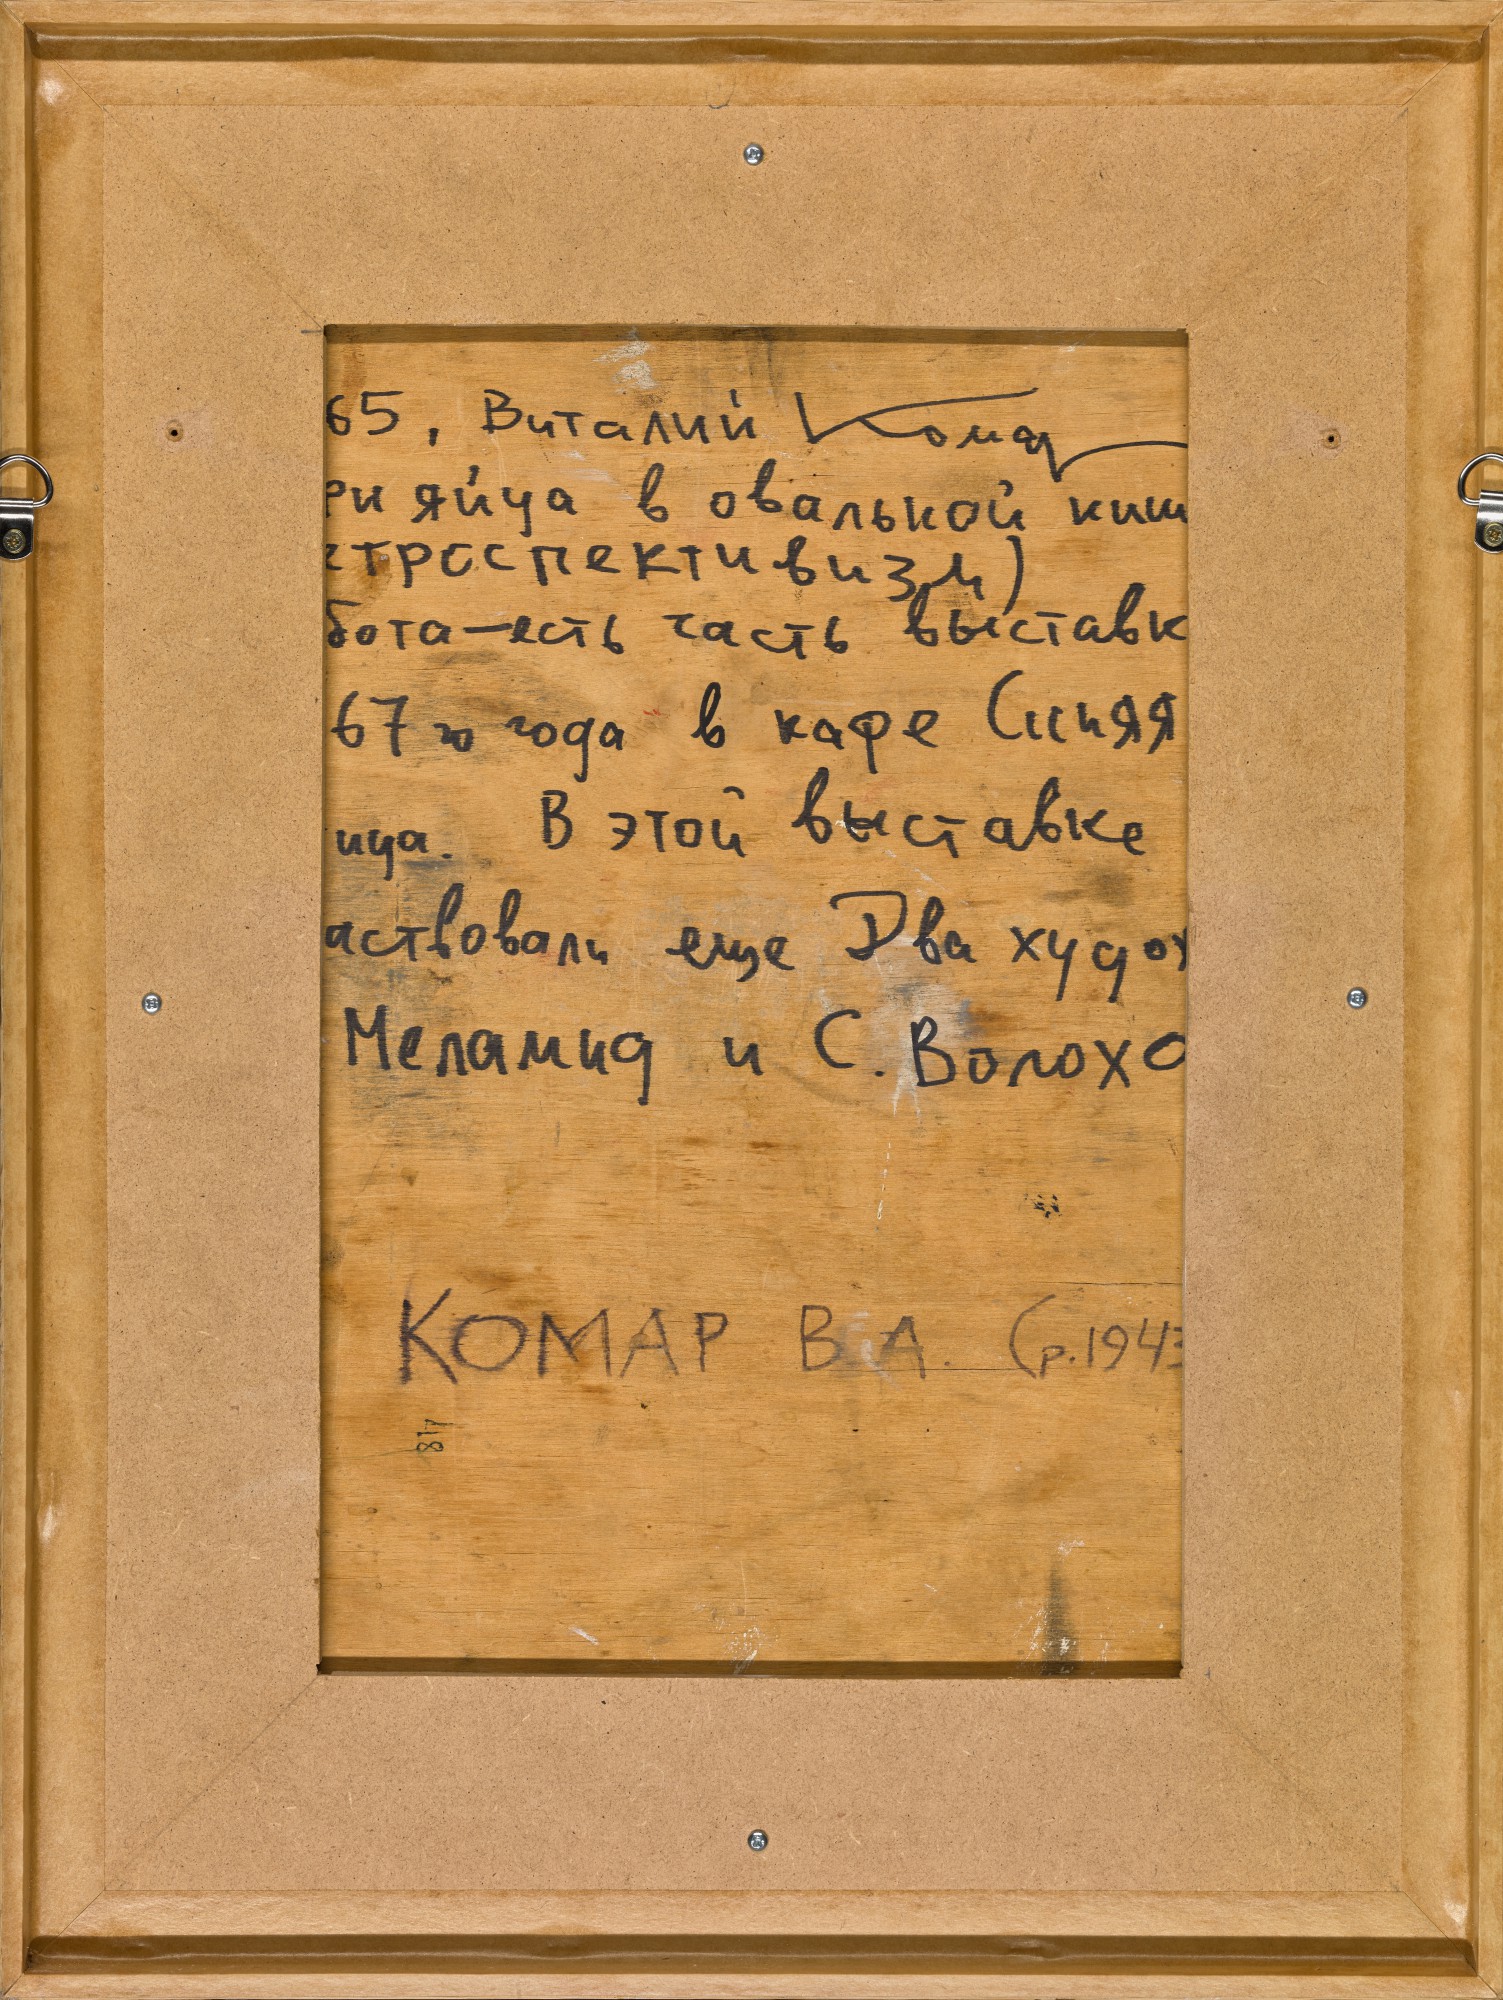 65, Виталий Комар
ри яйца в овальной ниш
строспективизм)
бота-есть часть выставк
67го года в кафе Синяя
ица. В этой выставке
аствовали еще Два худож
Меламид и С. Волохо
КОМАР В.А. (р.1943